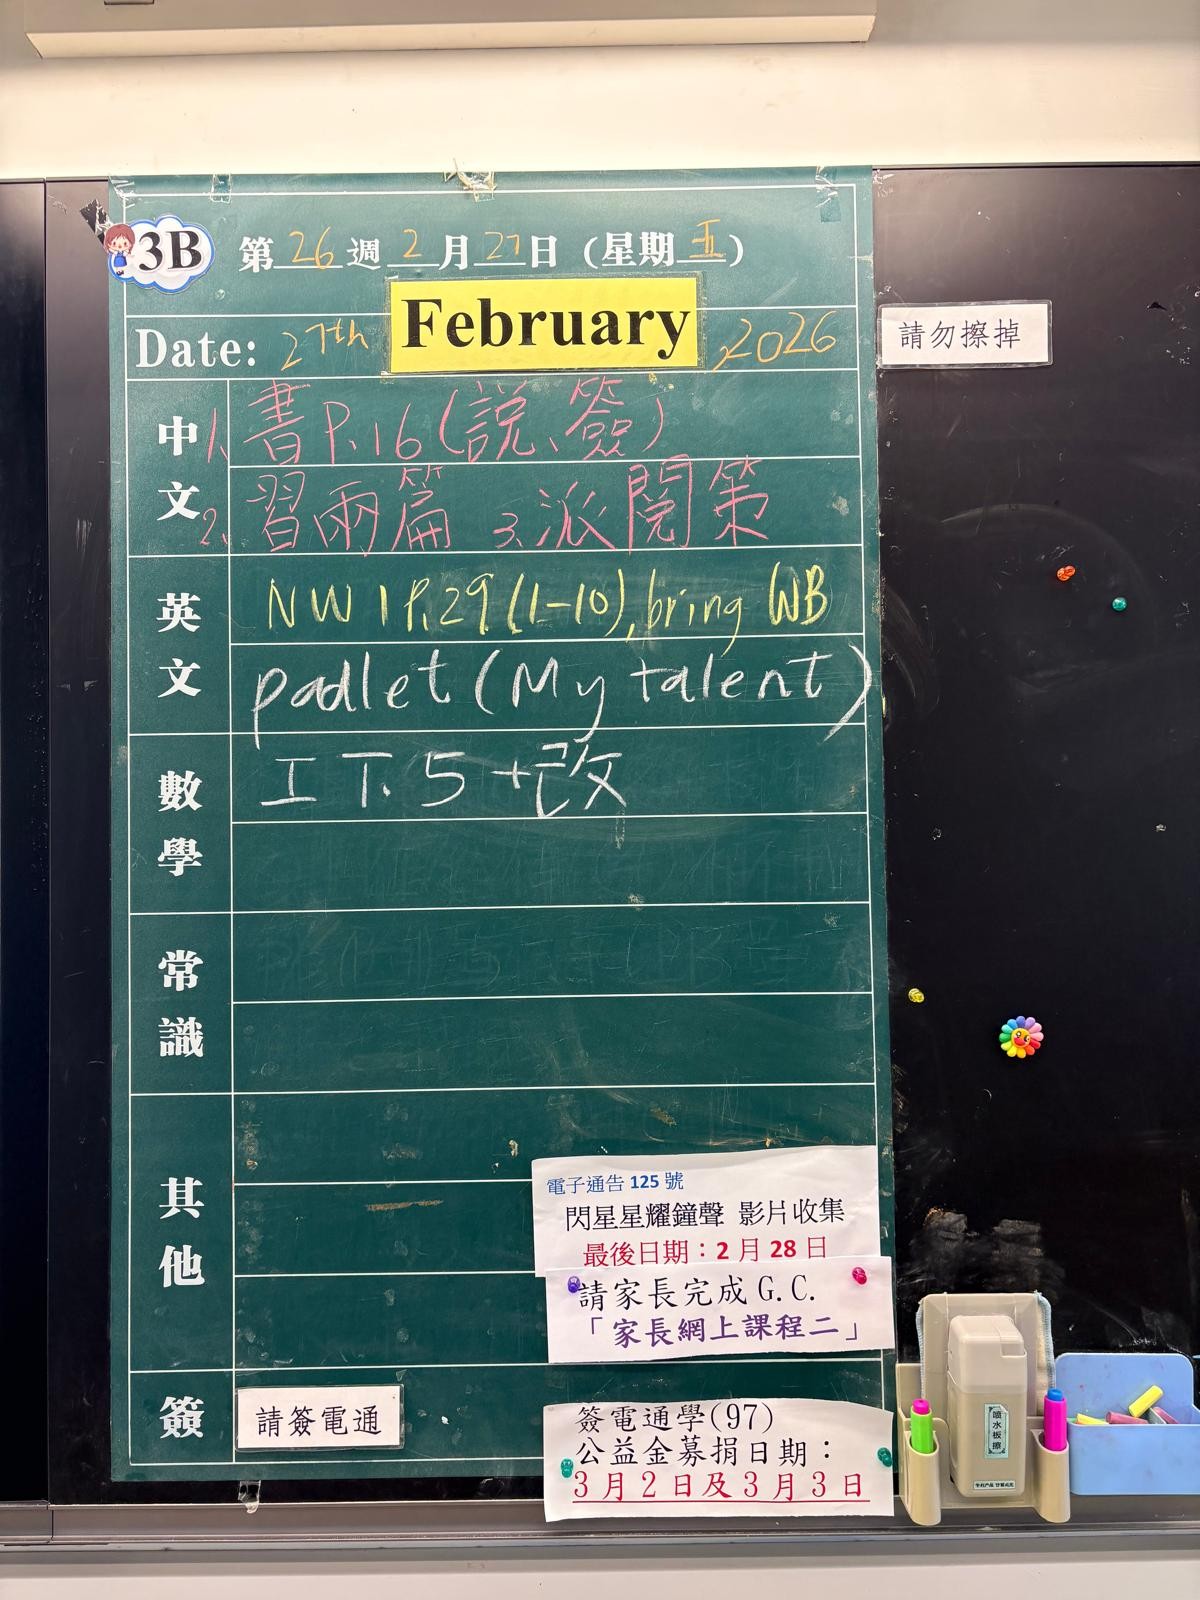 3B 第26週2月27日(星期五)
Date: 27th February, 2026
請勿擦掉
中文
1. 書P.16(說、簽)
2. 習兩篇 3. 派閱策
英文
NW1 P.29(1-10), bring WB
padlet(My talent)
數學
工T.5+改
常識
其他
電子通告125號
閃星星耀鐘聲 影片收集
最後日期：2月28日
請家長完成G.C.
「家長網上課程二」
簽
請簽電通
簽電通學(97)
公益金募捐日期：
3月2日及3月3日
噴水板擦